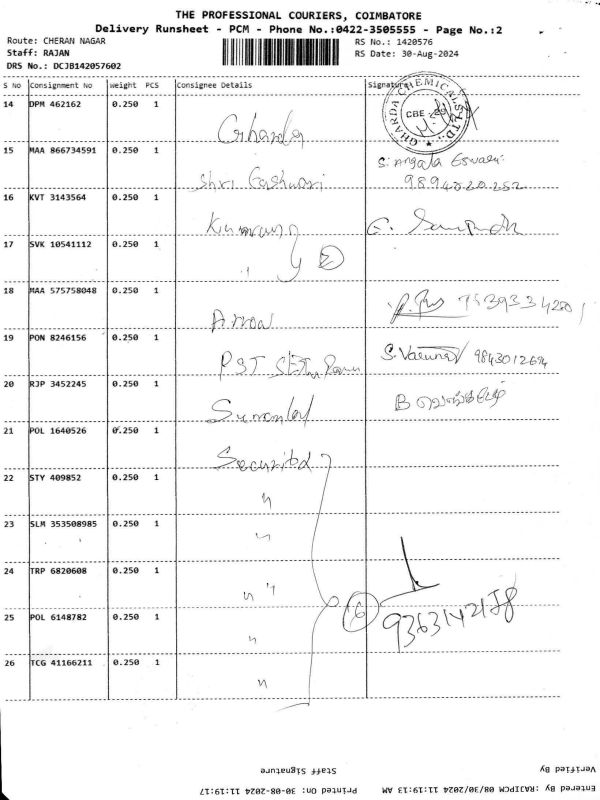 THE PROFESSIONAL COURIERS, COIMBATORE
Delivery Runsheet - PCM - Phone No.:0422-3505555 - Page No.:2
Route: CHERAN NAGAR
Staff: RAJAN
DRS No.: DCJB142057602
RS No.: 1420576
RS Date: 30-Aug-2024
S No Consignment No Weight PCS Consignee Details Signature
14 DPM 462162 0.250 1 Gharda
GHARDA CHEMICALS LTD.
CBE - 29
15 MAA 866734591 0.250 1 Shri Eashwari S. Angala Eswari
9894020252
16 KVT 3143564 0.250 1
17 SVK 10541112 0.250 1 " 2
18 MAA 575758048 0.250 1 Arrow
19 PON 8246156 0.250 1 PST 9843012694
20 RJP 3452245 0.250 1 B
21 POL 1640526 0.250 1
22 STY 409852 0.250 1 "
23 SLM 353508985 0.250 1 "
24 TRP 6820608 0.250 1 "
25 POL 6148782 0.250 1 " 6
26 TCG 41166211 0.250 1 "
Staff Signature
Verified By
Printed On: 30-08-2024 11:19:17
Entered By :RAJIPCM 08/30/2024 11:19:13 AM